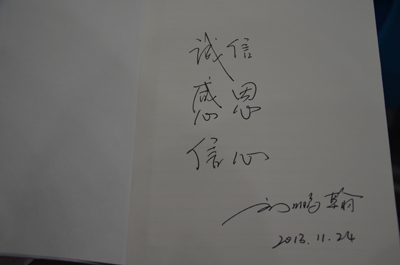 诚信
感恩
信心
刘鹏翰
2013.11.24